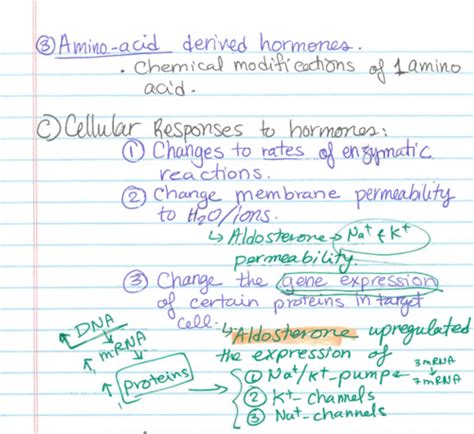 ③ Amino-acid derived hormones.
• Chemical modifications of 1 amino
acid.
C) Cellular Responses to hormones:
① Changes to rates of enzymatic
reactions.
② Change membrane permeability
to H₂O/ions.
↳ Aldosterone → Na⁺ & K⁺
permeability.
③ Change the gene expression
of certain proteins in target
cell.
↳ Aldosterone upregulated
the expression of
① Na⁺/K⁺-pump ← 3 mRNA
→ 7 mRNA
② K⁺- channels
③ Na⁺-channels
↑ DNA
↑ mRNA
↑ Proteins